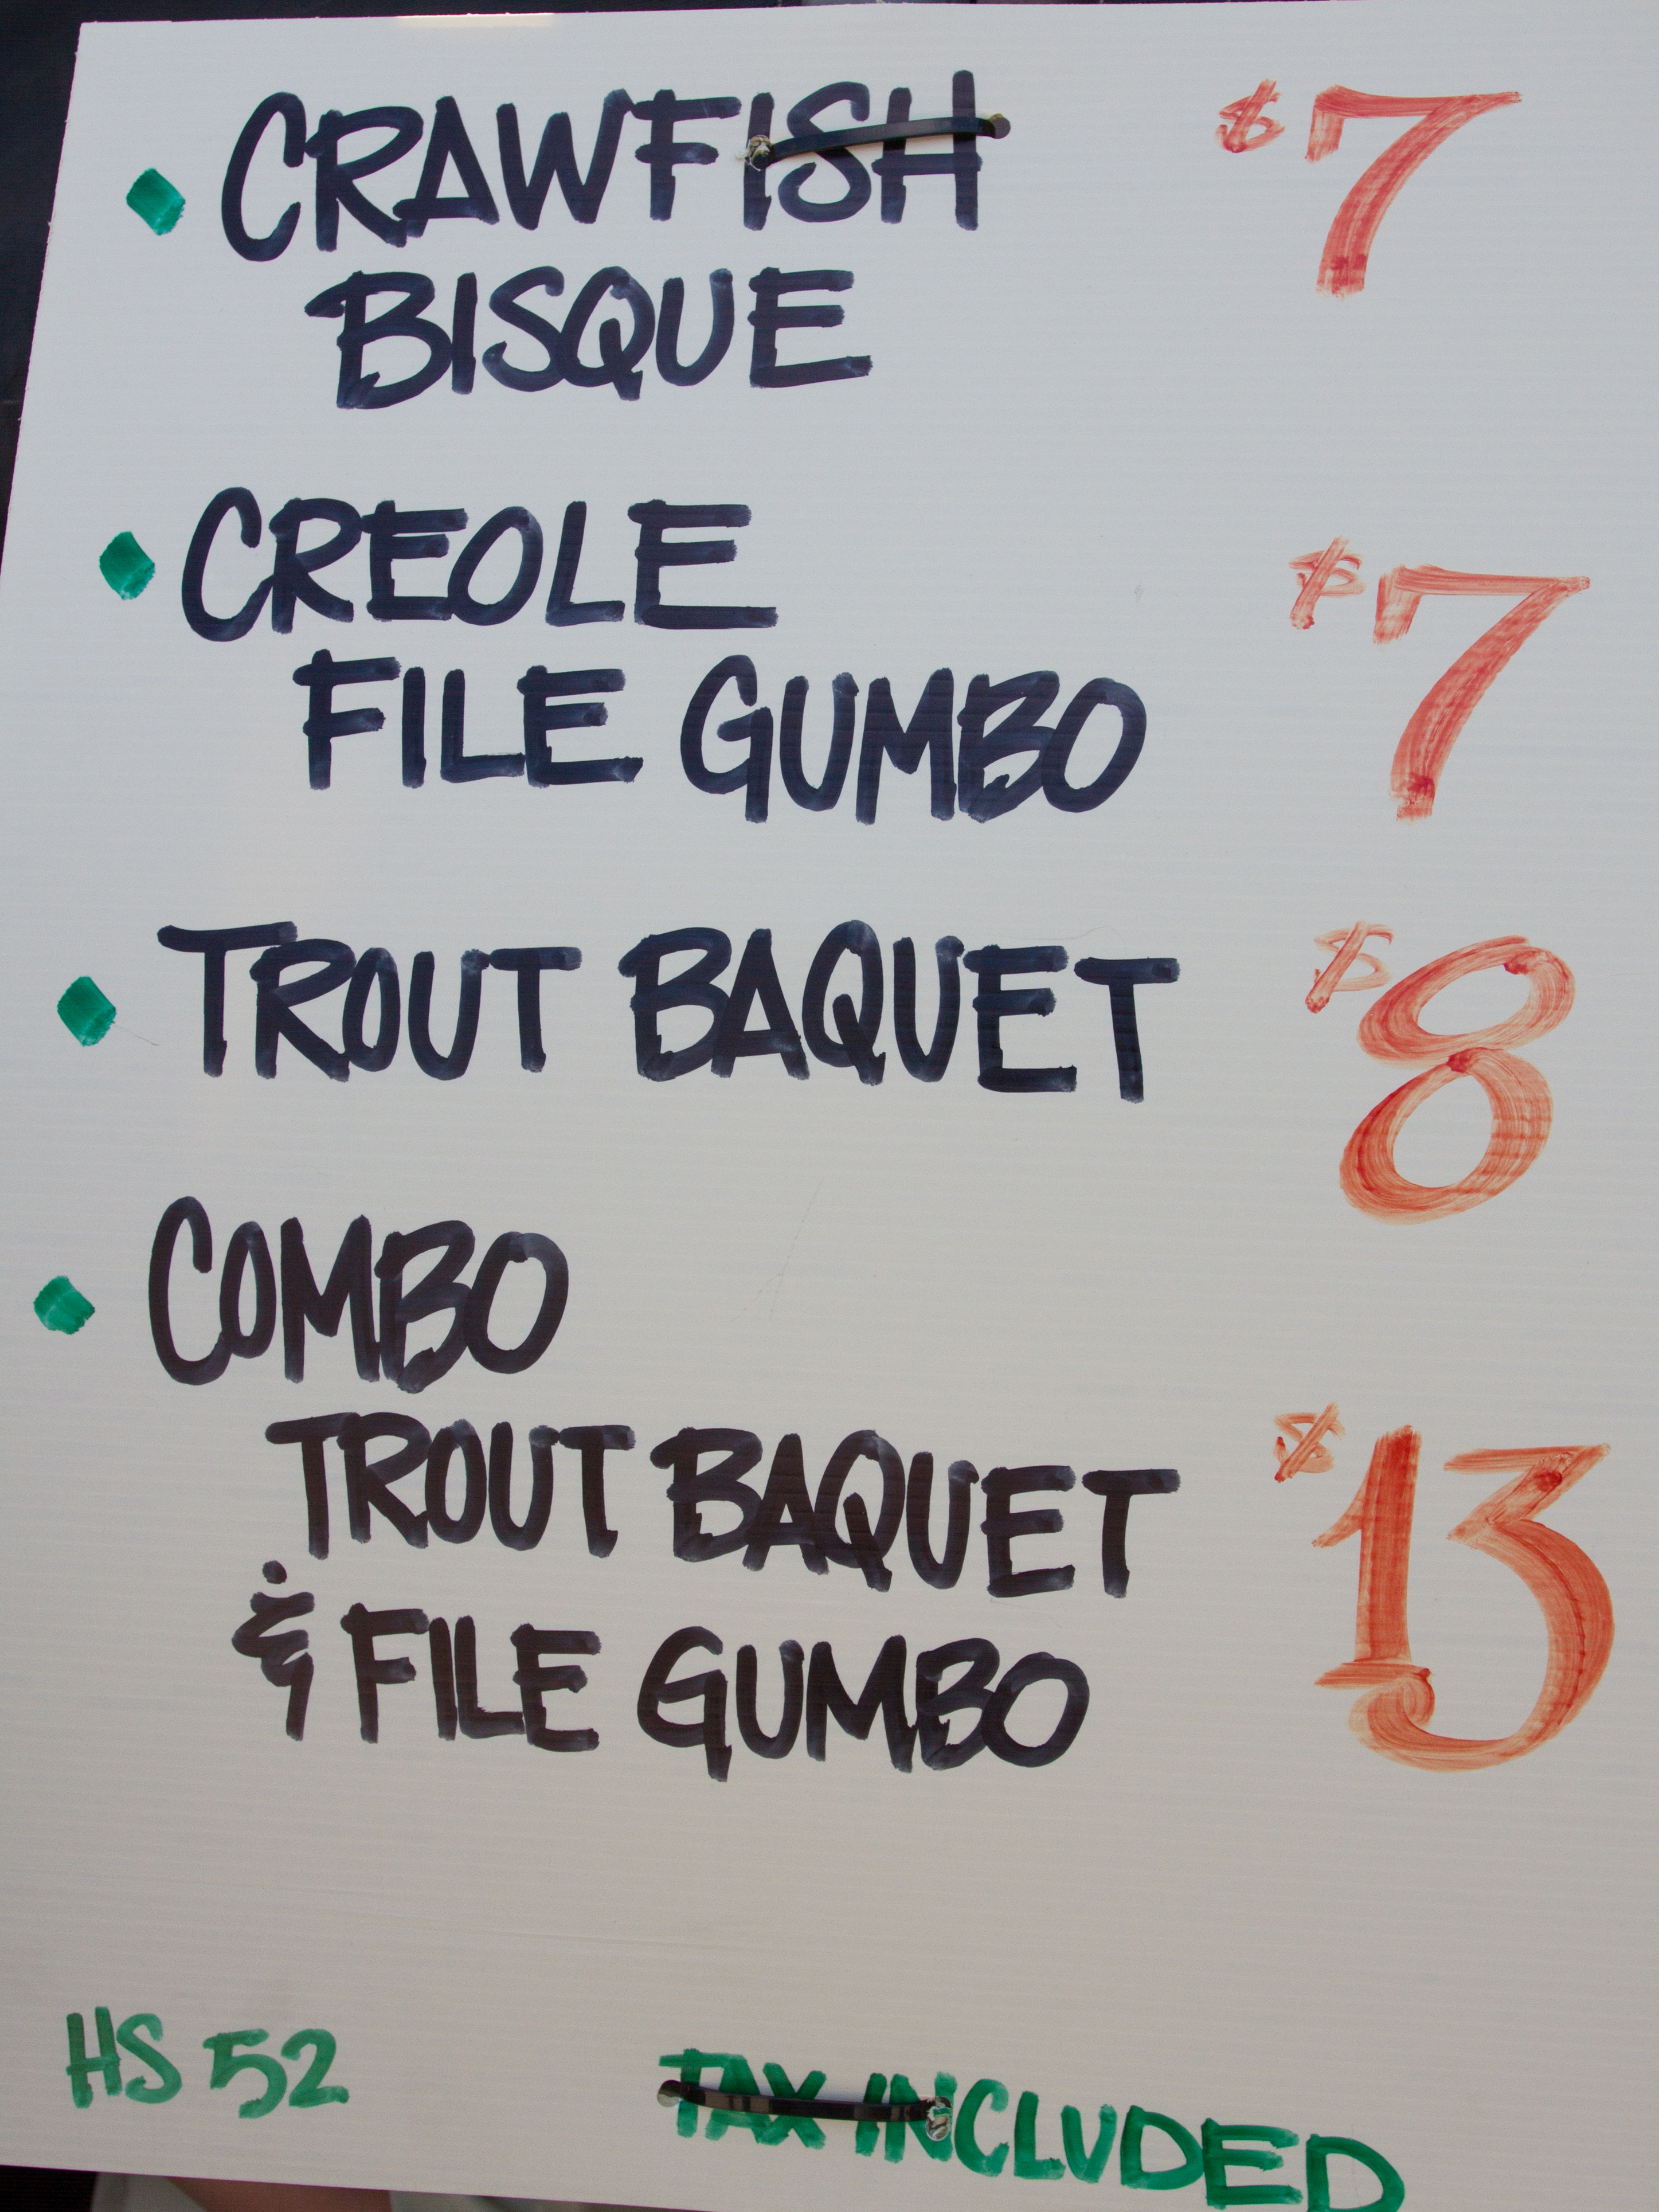 CRAWFISH $7
BISQUE
CREOLE $7
FILE GUMBO
TROUT BAQUET $8
COMBO
TROUT BAQUET $13
& FILE GUMBO
HS 52 TAX INCLUDED